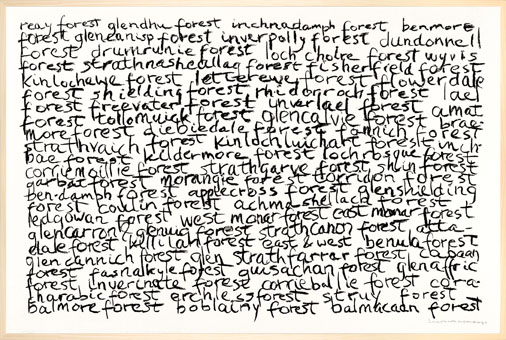 reay forest glendhu forest inchnadamph forest benmore
forest glencanisp forest inverpolly forest dundonnell
forest drumrunie forest loch choire forest wyvis
forest strathnasheallag forest fisherfield forest
kinlochewe forest letterewe forest flowerdale
forest shielding forest rhidorroch forest lael
forest freevater forest inverlael forest amat
forest tollomuick forest glencalvie forest brae-
more forest diebiedale forest fannich forest
strathvaich forest kinlochluichart forest inch-
bae forest kildermore forest lochrosque forest
corriemoillie forest strathgarve forest shin forest
garbat forest morangie forest torridon forest
ben-damph forest applecross forest glenshielding
forest coulin forest achnashellach forest
ledgowan forest west monar forest east monar forest
glencarron/glenuig forest strathconon forest atta-
dale forest killilan forest east & west benula forest
glencannich forest glen strathfarrar forest
forest fasnakyle forest guisachan forest glenaffric
forest inverinate forest corrieballe forest cora-
charabic forest erchless forest struy forest
balmore forest boblainy forest balmacaan forest